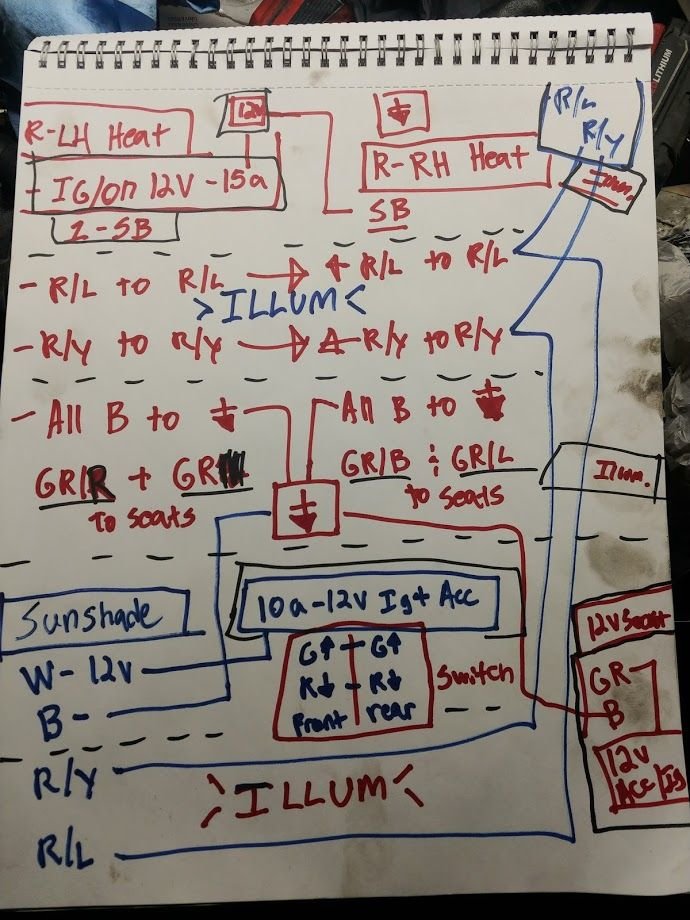 LITHIUM
R-LH Heat
12v
R-RH Heat
R/L
R/Y
Illum.
- IG/on 12V -15a
1-SB
SB
- R/L to R/L R/L to R/L
>ILLUM<
- R/Y to R/Y R/Y to R/Y
- All B to All B to
GR/R + GR
to seats
GR/B & GR/L
to seats
Illum.
Sunshade
10a-12v Ig+ Acc
12V Seat
W- 12v
B-
G↑ - G↑
R↓ - R↓
Front rear
Switch
GR
B
12v
Acc/Ig
R/Y
ILLUM
R/L